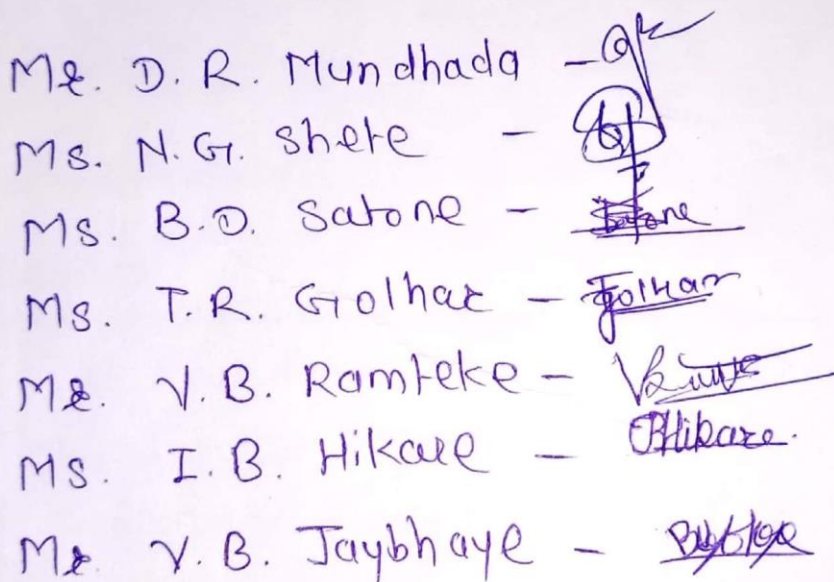 Mr. D. R. Mundhada -
Ms. N. G. Shete -
Ms. B. D. Satone - Satone
Ms. T. R. Golhar - Golhar
Mr. V. B. Ramteke -
Ms. I. B. Hikare - Hikare.
Mr. V. B. Jaybhaye -